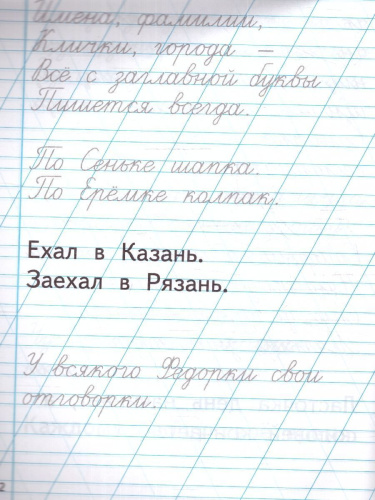 Имена, фамилии,
Клички, города –
Всё с заглавной буквы
Пишется всегда.
По Сеньке шапка.
По Ерёмке колпак.
Ехал в Казань.
Заехал в Рязань.
У всякого Федорки свои
отговорки.
2